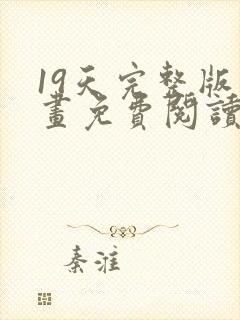 19天完整版
畫免費閱讀
秦淮